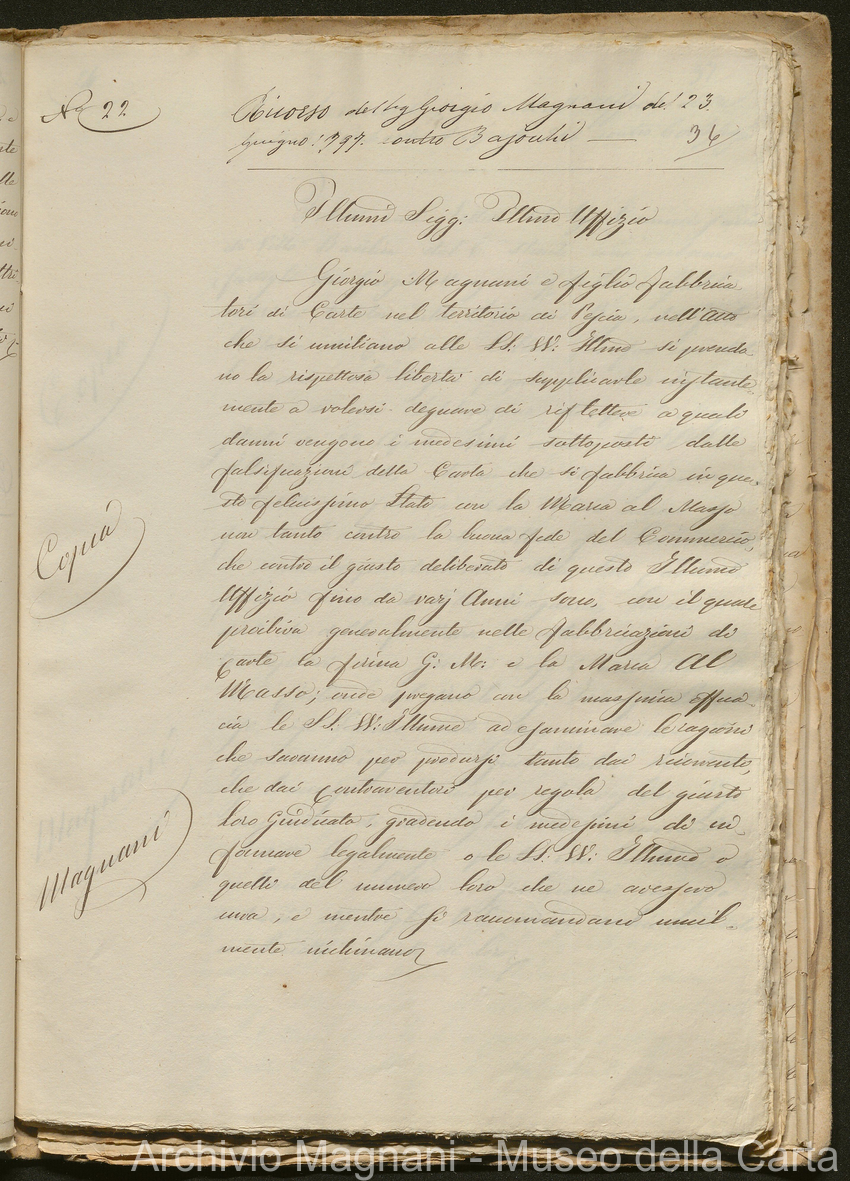 N.° 22.
Ricorso del Sig Giorgio Magnani de' 23.
Giugno 1797. contro Bajocchi — 34
Illumi Sigg: Illmo Uffizio
Giorgio Magnani e figlio Fabbrica
tori di Carte nel territorio di Pescia, nell'Atto
che si umiliano alle SS: VV: Illme si prendo-
no la rispettosa libertà di supplicarle instante-
mente a volersi degnare di riflettere a quali
danni vengono i medesimi sottoposti dalle
falsificazioni della Carta che si fabbrica in que-
sto felicissimo Stato con la Marca al Masso
non tanto contro la buona fede del Commercio,
che contro il giusto deliberato di questo Illumo
Uffizio fino da varj Anni sono, con il quale
proibiva generalmente nelle Fabbricazioni di
Carte la firma G: M: e la Marca Al
Masso; onde pregano con la massima effica-
cia le SS: VV: Illume ad esaminare le ragioni
che saranno per prodursi tanto dai ricorrenti,
che dai Contraventori per regola del giusto
loro Giudicato, gradendo i medesimi di in-
formare legalmente o le SS: VV: Illume o
quelli del numero loro che ne avessero
cura, e mentre si raccomandano umil-
mente inchinano
Copia
Magnani
Archivio Magnani - Museo della Carta